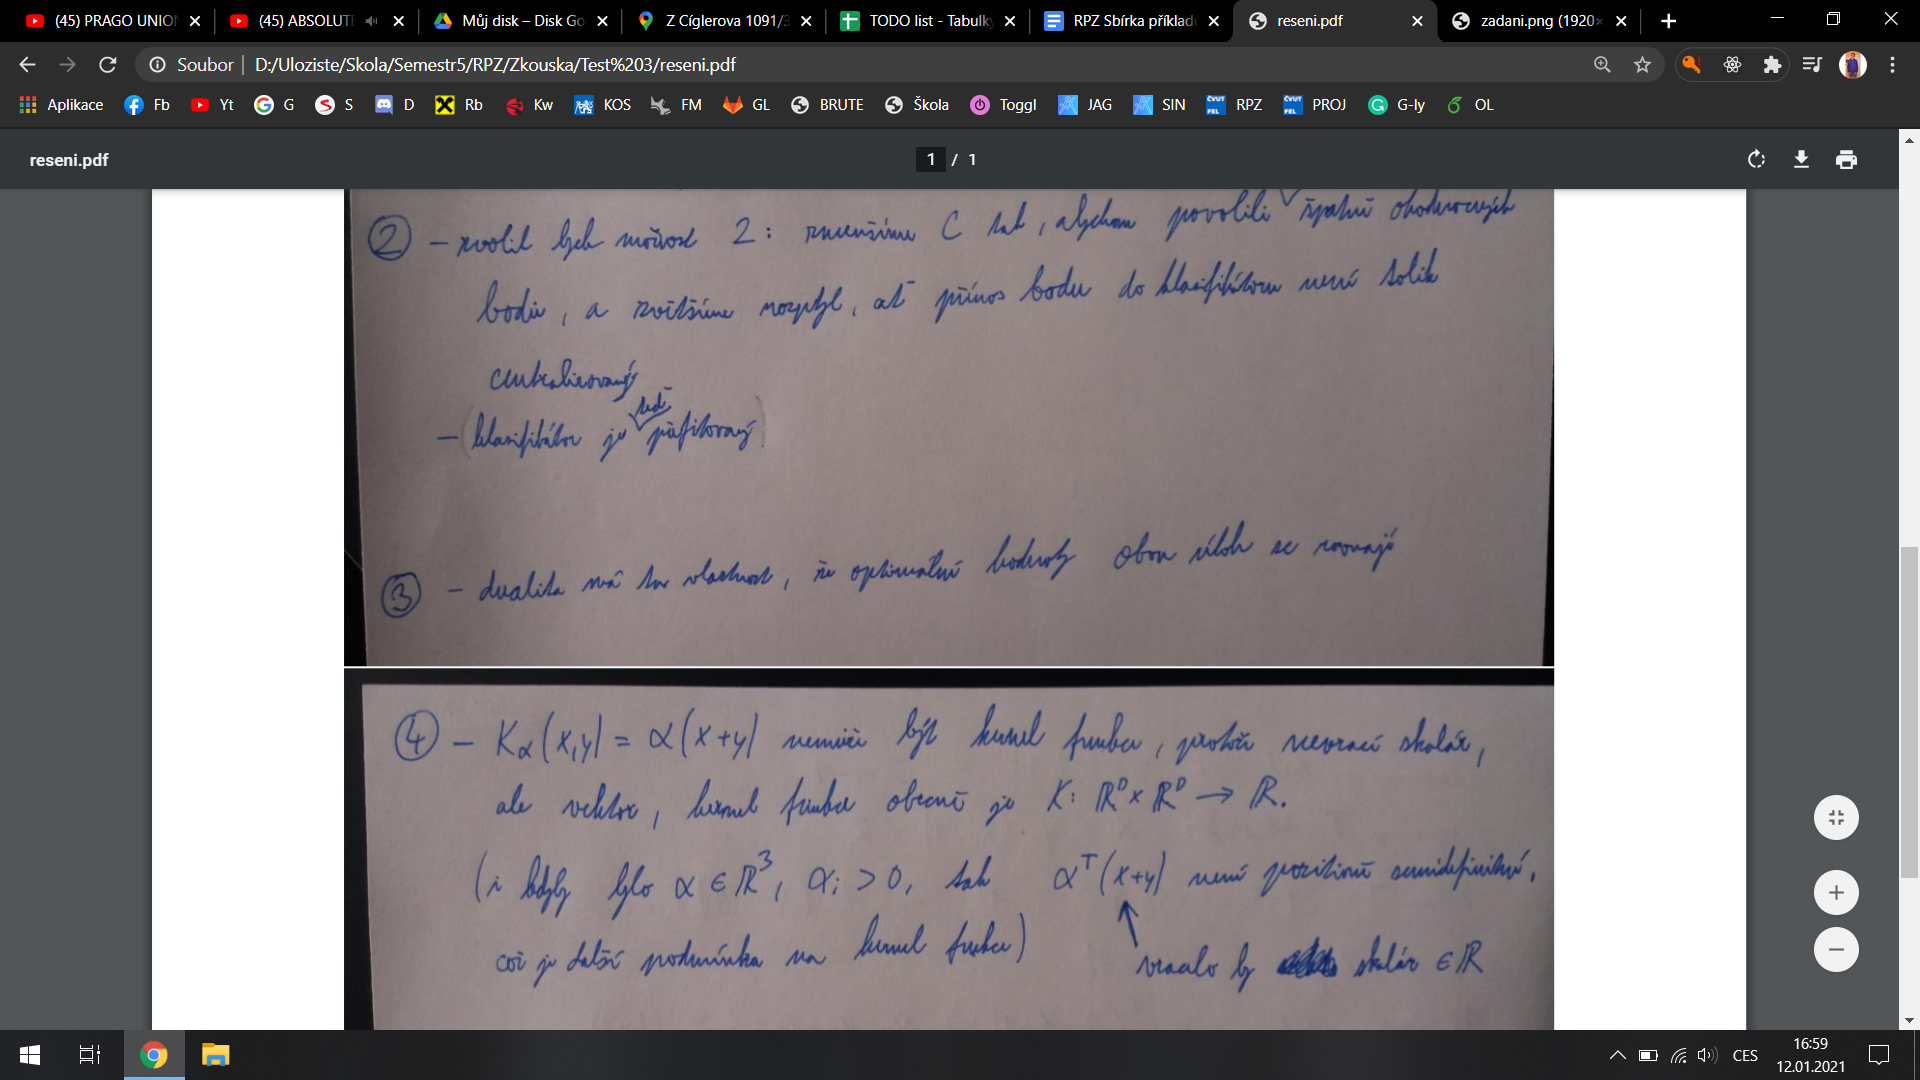 (45) PRAGO UNION
(45) ABSOLUTE
Můj disk – Disk Go
Z Cíglerova 1091/3
TODO list - Tabulky
RPZ Sbírka příkladů
reseni.pdf
zadani.png (1920×
Soubor | D:/Uloziste/Skola/Semestr5/RPZ/Zkouska/Test%203/reseni.pdf
Aplikace Fb Yt G S D Rb Kw KOS FM GL BRUTE Škola Toggl JAG SIN RPZ PROJ G-ly OL
reseni.pdf 1 / 1
② – zvolil bych možnost 2: zmenšíme C tak, abychom povolili špatně ohodnocených
bodů, a zvětšíme rozptyl, ať přínos bodu do klasifikátoru není tolik
centralizovaný
teď
– (klasifikátor je přefitovaný)
③ – dualita má tu vlastnost, že optimální hodnoty obou úloh se rovnají
④ – Kα(x,y) = α(x+y) nemůže být kernel funkce, protože nevrací skalár,
ale vektor, kernel funkce obecně je K: ℝᴰ × ℝᴰ → ℝ.
(i kdyby bylo α ∈ ℝ³, αᵢ > 0, tak αᵀ(x+y) není pozitivně semidefinitní,
což je další podmínka na kernel funkce)
vracelo by skalár ∈ ℝ
CES
16:59
12.01.2021